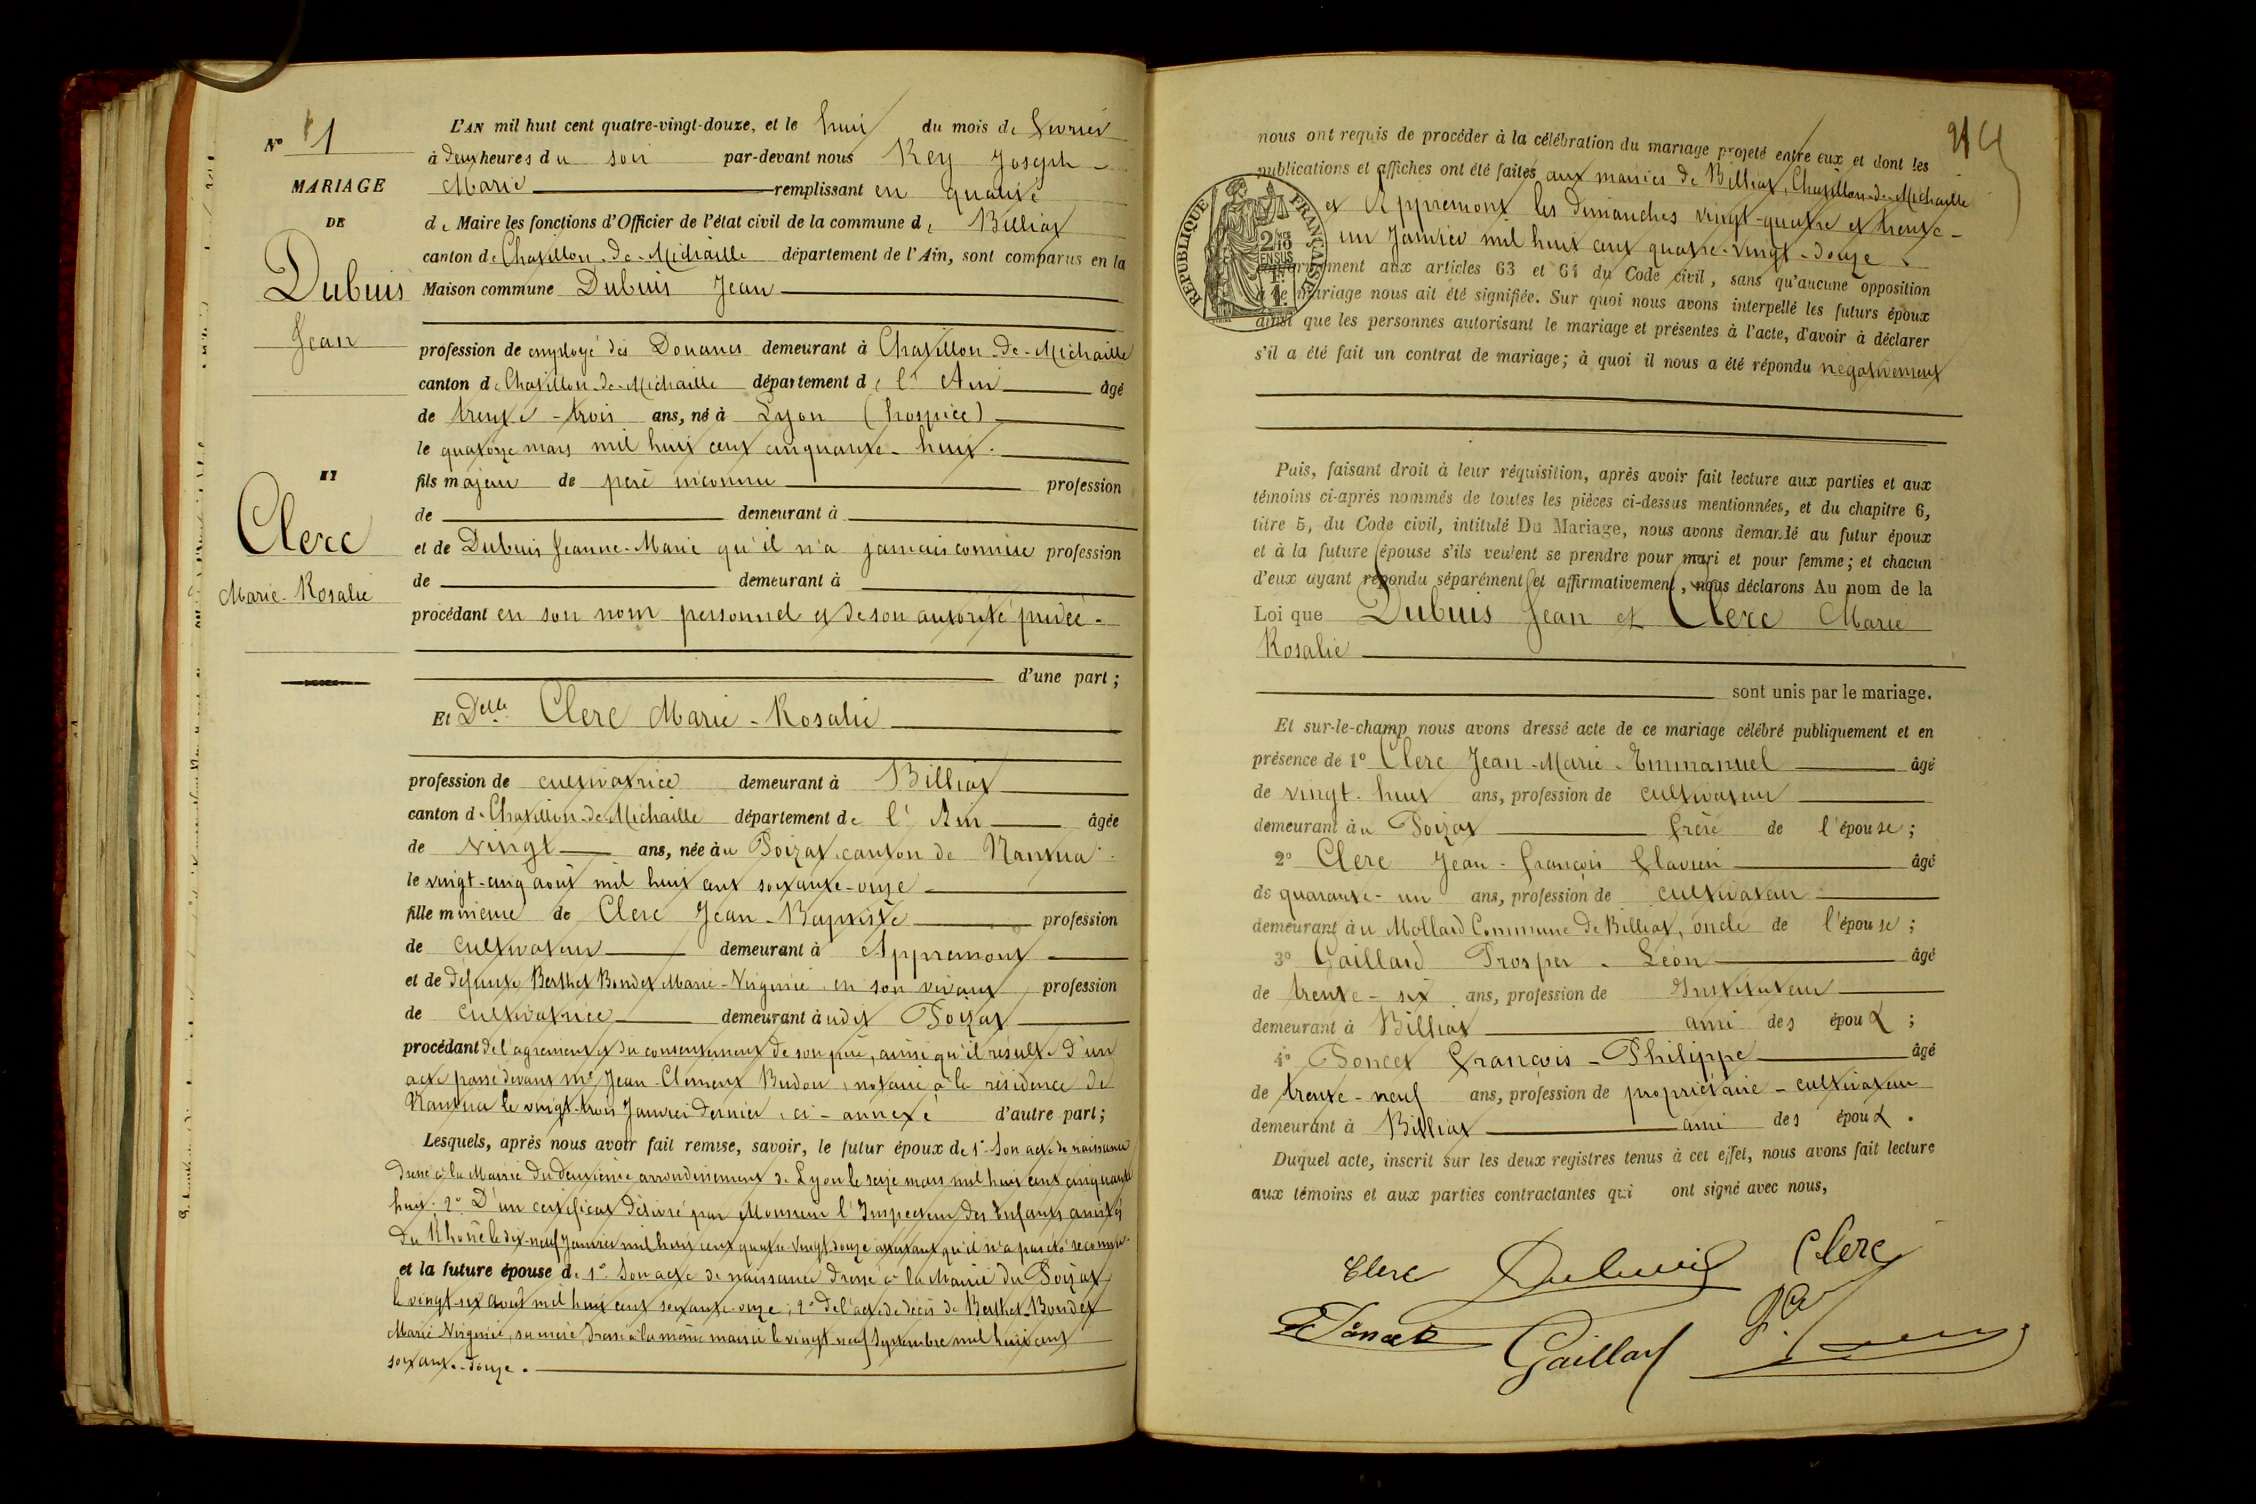 N° 1
MARIAGE
DE
Dubuis
Jean
ET
Clerc
Marie-Rosalie
L'AN mil huit cent quatre-vingt-douze, et le huit du mois de février
à deux heures du soir par-devant nous Rey Joseph-
Marie remplissant en qualité
de Maire les fonctions d'Officier de l'état civil de la commune de Billiat
canton de Chatillon-de-Michaille département de l'Ain, sont comparus en la
Maison commune Dubuis Jean
profession de employé des Douanes demeurant à Chatillon-de-Michaille
canton de Chatillon-de-Michaille département de l'Ain âgé
de trente-trois ans, né à Lyon (hospice)
le quatorze mars mil huit cent cinquante-huit.
fils majeur de père inconnu profession
de demeurant à
et de Dubuis Jeanne-Marie qu'il n'a jamais connue profession
de demeurant à
procédant en son nom personnel et de son autorité privée.
d'une part;
Et Delle Clerc Marie-Rosalie
profession de cultivatrice demeurant à Billiat
canton de Chatillon-de-Michaille département de l'Ain âgée
de vingt ans, née au Poizat, canton de Nantua
le vingt-cinq août mil huit cent soixante-onze
fille mineure de Clerc Jean-Baptiste profession
de cultivateur demeurant à Appremont
et de défunte Berthet Bondet Marie-Virginie en son vivant profession
de cultivatrice demeurant audit Poizat
procédant de l'agrément et du consentement de son père, ainsi qu'il résulte d'un
acte passé devant Me Jean-Clément Budon, notaire à la résidence de
Nantua le vingt-trois Janvier dernier, ci-annexé d'autre part;
Lesquels, après nous avoir fait remise, savoir, le futur époux de 1° Son acte de naissance
dressé à la Mairie du deuxième arrondissement de Lyon le seize mars mil huit cent cinquante
huit; 2° D'un certificat délivré par Monsieur l'Inspecteur des Enfants assistés
du Rhône le dix-neuf Janvier mil huit cent quatre-vingt douze attestant qu'il n'a pas été reconnu.
et la future épouse de 1° Son acte de naissance dressé à la Mairie du Poizat
le vingt-six août mil huit cent soixante-onze; 2° de l'acte de décès de Berthet-Bondet
Marie Virginie, sa mère, dressé à la même mairie le vingt-neuf Septembre mil huit cent
soixante-douze.
nous ont requis de procéder à la célébration du mariage projeté entre eux et dont les
publications et affiches ont été faites aux mairies de Billiat, Chatillon-de-Michaille
et Appremont les Dimanches vingt-quatre et trente-
un Janvier mil huit cent quatre-vingt-douze
conformément aux articles 63 et 64 du Code civil, sans qu'aucune opposition
à ce mariage nous ait été signifiée. Sur quoi nous avons interpellé les futurs époux
ainsi que les personnes autorisant le mariage et présentes à l'acte, d'avoir à déclarer
s'il a été fait un contrat de mariage; à quoi il nous a été répondu négativement
RÉPUBLIQUE FRANÇAISE
Puis, faisant droit à leur réquisition, après avoir fait lecture aux parties et aux
témoins ci-après nommés de toutes les pièces ci-dessus mentionnées, et du chapitre 6,
titre 5, du Code civil, intitulé Du Mariage, nous avons demandé au futur époux
et à la future épouse s'ils veulent se prendre pour mari et pour femme; et chacun
d'eux ayant répondu séparément et affirmativement, nous déclarons Au nom de la
Loi que Dubuis Jean et Clerc Marie
Rosalie
sont unis par le mariage.
Et sur-le-champ nous avons dressé acte de ce mariage célébré publiquement et en
présence de 1° Clerc Jean-Marie-Emmanuel âgé
de vingt-huit ans, profession de cultivateur
demeurant au Poizat frère de l'épouse;
2° Clerc Jean-François Flavien âgé
de quarante-un ans, profession de cultivateur
demeurant au Mollard Commune de Billiat, oncle de l'épouse;
3° Gaillard Prosper-Léon âgé
de trente-six ans, profession de Instituteur
demeurant à Billiat ami des époux;
4° Poncet François-Philippe âgé
de trente-neuf ans, profession de propriétaire-cultivateur
demeurant à Billiat ami des époux.
Duquel acte, inscrit sur les deux registres tenus à cet effet, nous avons fait lecture
aux témoins et aux parties contractantes qui ont signé avec nous,
Clerc Dubuis Clerc
Gaillard